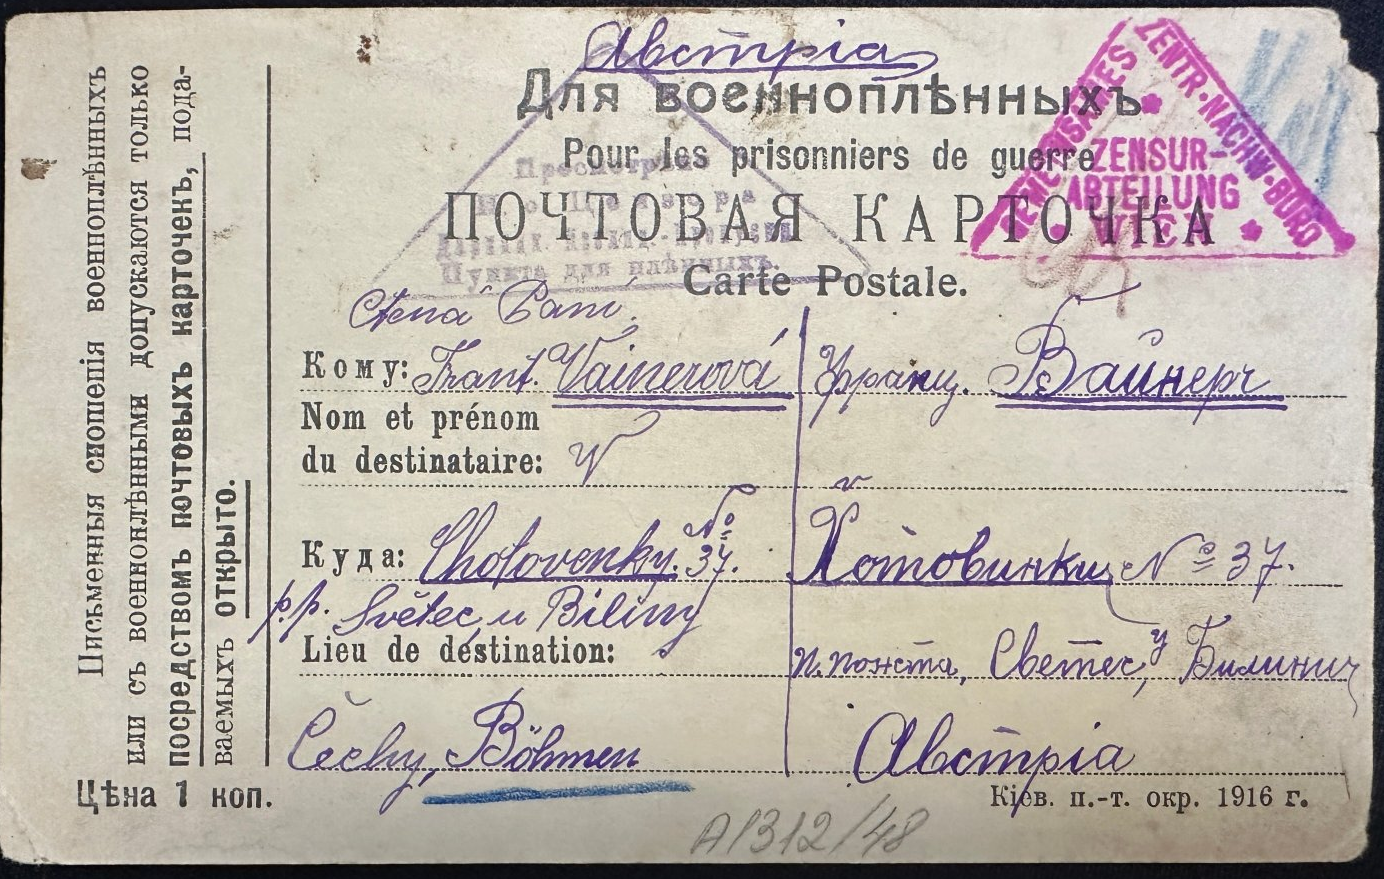 Австрія
Для военноплѣнныхъ
Pour les prisonniers de guerre
ПОЧТОВАЯ КАРТОЧКА
Carte Postale.
GEMEINSAMES ZENTR·NACHW·BÜRO
ZENSUR-
ABTEILUNG
WIEN
Пункта для плѣнныхъ.
Ctěná Paní.
Кому: Frant. Vainerová
Франц. Вайнеръ
Nom et prénom
du destinataire: V
в
Куда: Chotovenky. № 37.
Хотовинки, № 37.
p.p. Světec, u Biliny
п. понста, Светес, у Билинич
Lieu de destination:
Čechy, Böhmen
Австрія
Кіев. п.-т. окр. 1916 г.
Цѣна 1 коп.
A/312/48
Письменныя сношенія военноплѣнныхъ
или съ военноплѣнными допускаются только
посредствомъ почтовыхъ карточекъ, пода-
ваемыхъ открыто.